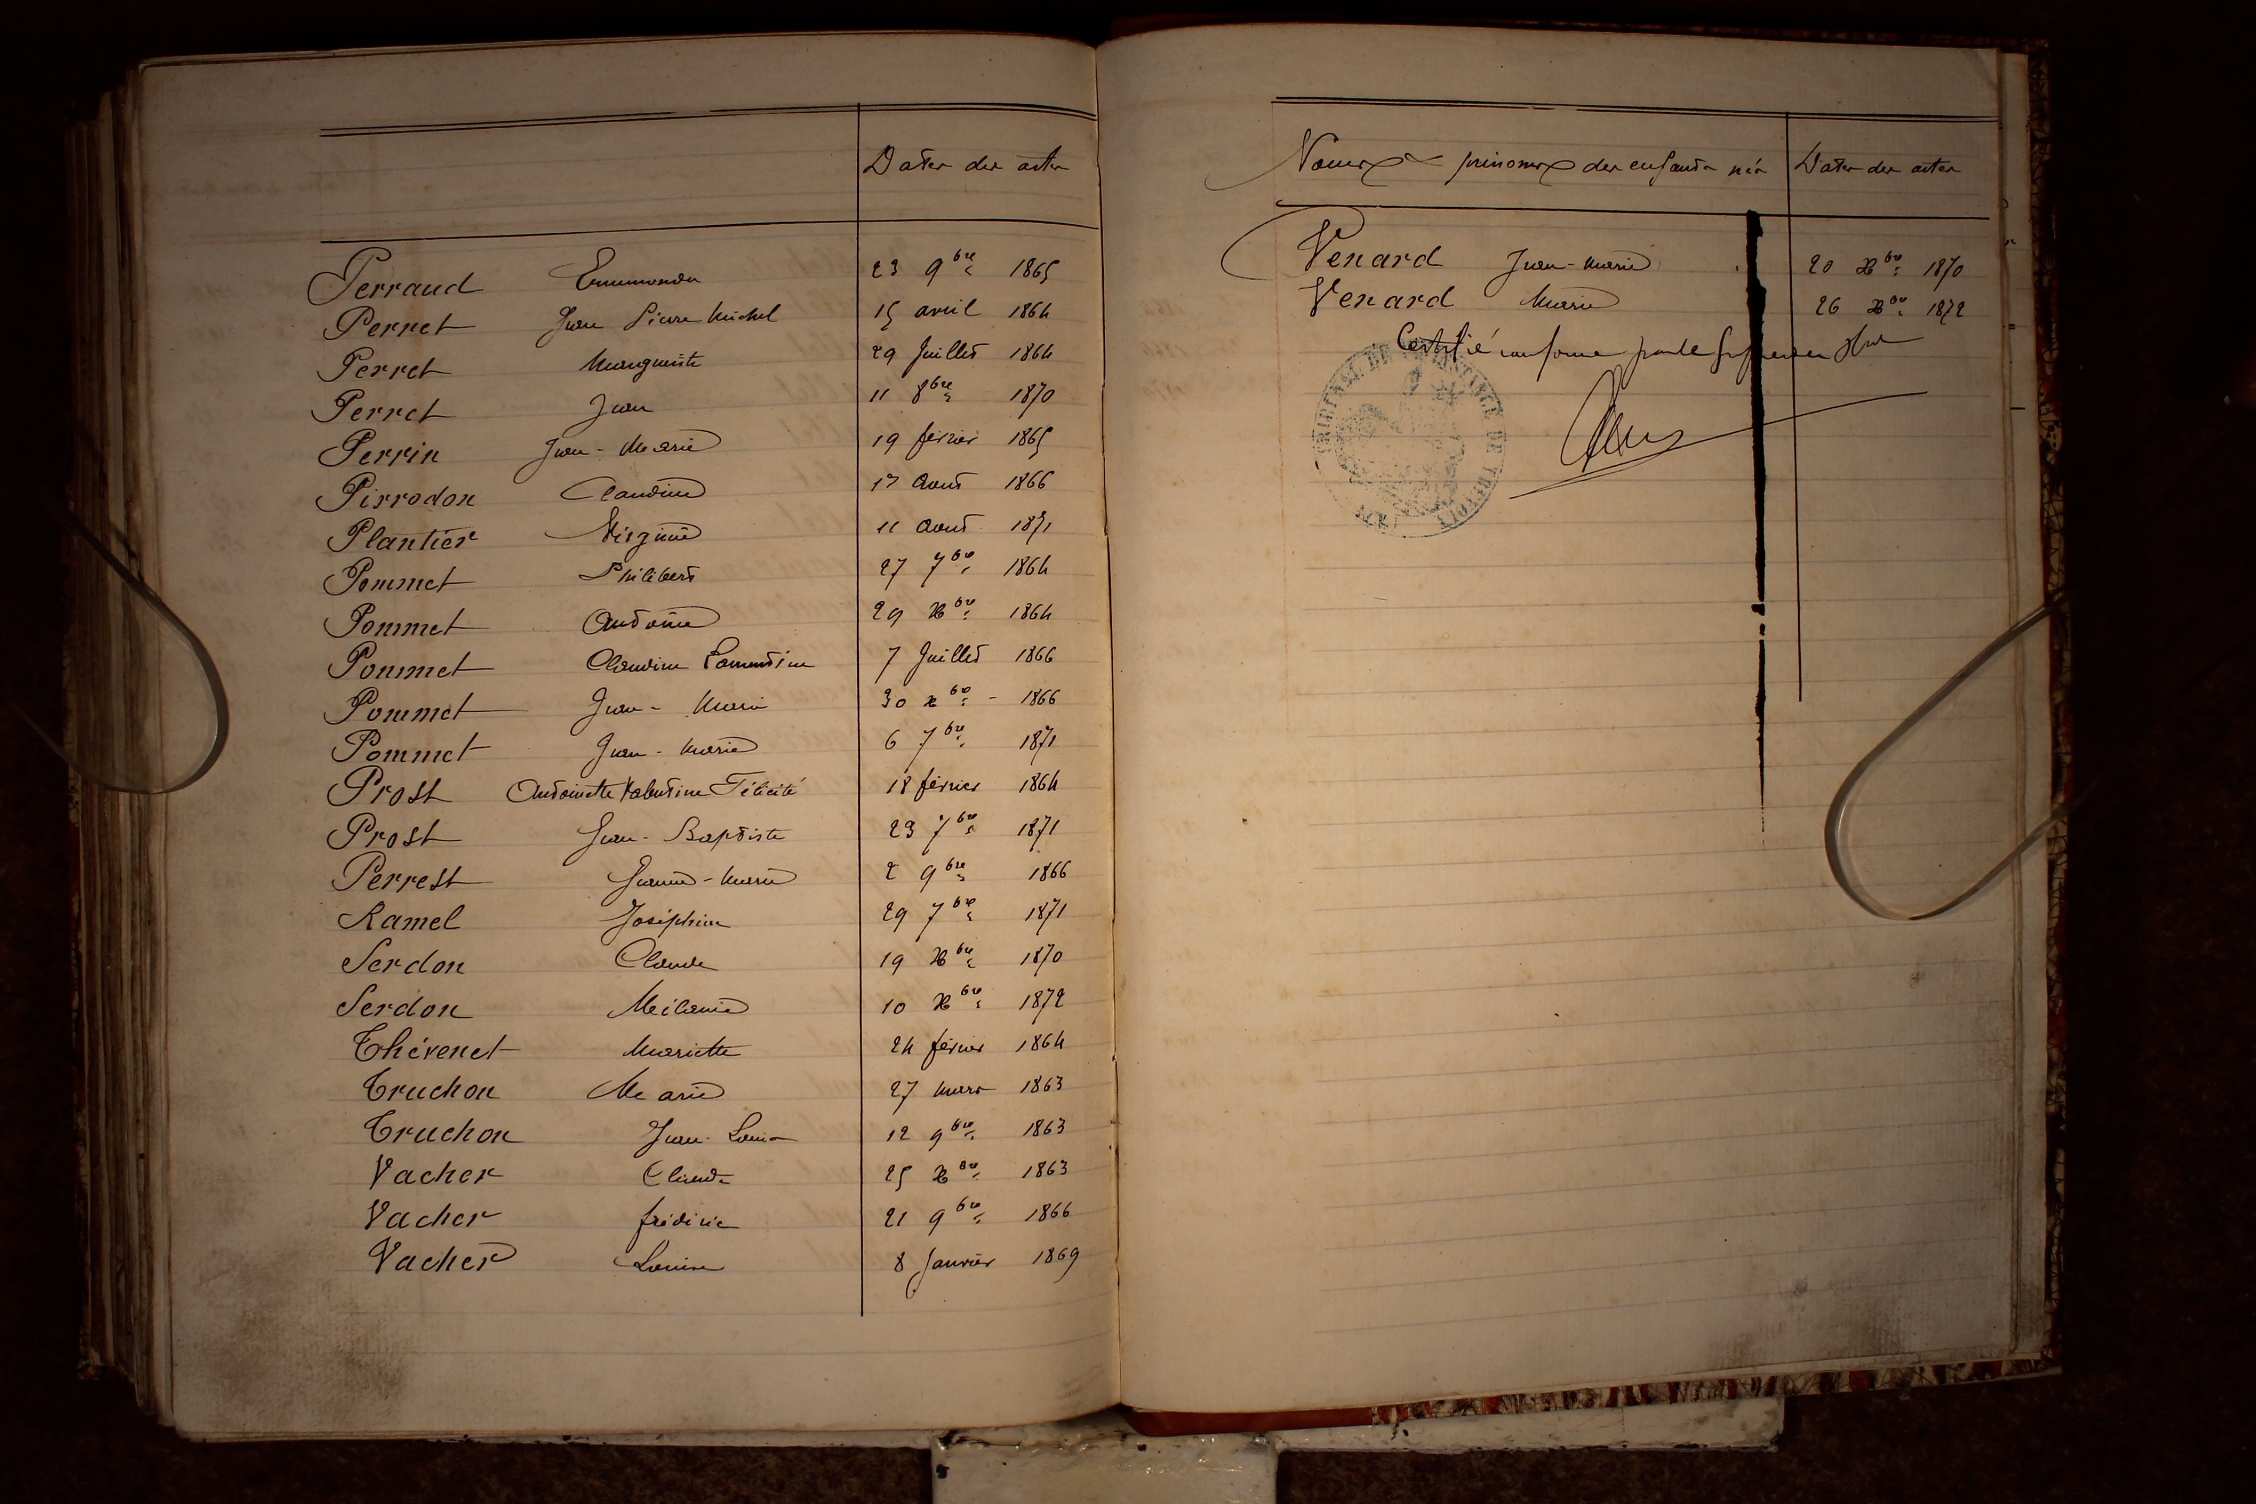 Dates des actes
Perraud Ennemonde 23 9bre 1865
Perret Jean Pierre Michel 15 avril 1864
Perret Marguerite 29 Juillet 1864
Perret Jean 11 8bre 1870
Perrin Jean-Marie 19 février 1865
Pirrodon Claudine 17 Aout 1866
Plantier Virginie 11 Aout 1871
Pommet Philibert 27 7bre 1864
Pommet Antoine 29 Xbre 1864
Pommet Claudine 7 Juillet 1866
Pommet Jean-Marie 30 Xbre - 1866
Pommet Jean-Marie 6 7bre 1871
Prost Antoinette Valentine Félicité 18 février 1864
Prost Jean-Baptiste 23 7bre 1871
Perrest Jeanne-Marie 2 9bre 1866
Ramel Joséphine 29 7bre 1871
Serdon Claude 19 Xbre 1870
Serdon Mélanie 10 Xbre 1872
Thévenet Mariette 24 février 1864
Truchon Marie 27 mars 1863
Truchon Jean-Louis 12 9bre 1863
Vacher Claude 25 Xbre 1863
Vacher frédéric 21 9bre 1866
Vacher Louise 8 Janvier 1869
Noms et prénoms des enfants nés Dates des actes
Venard Jean-Marie 20 Xbre 1870
Venard Marie 26 Xbre 1872
Certifié conforme par le Greffier
TRIBUNAL DE INSTANCE DE TREVOUX
AIN